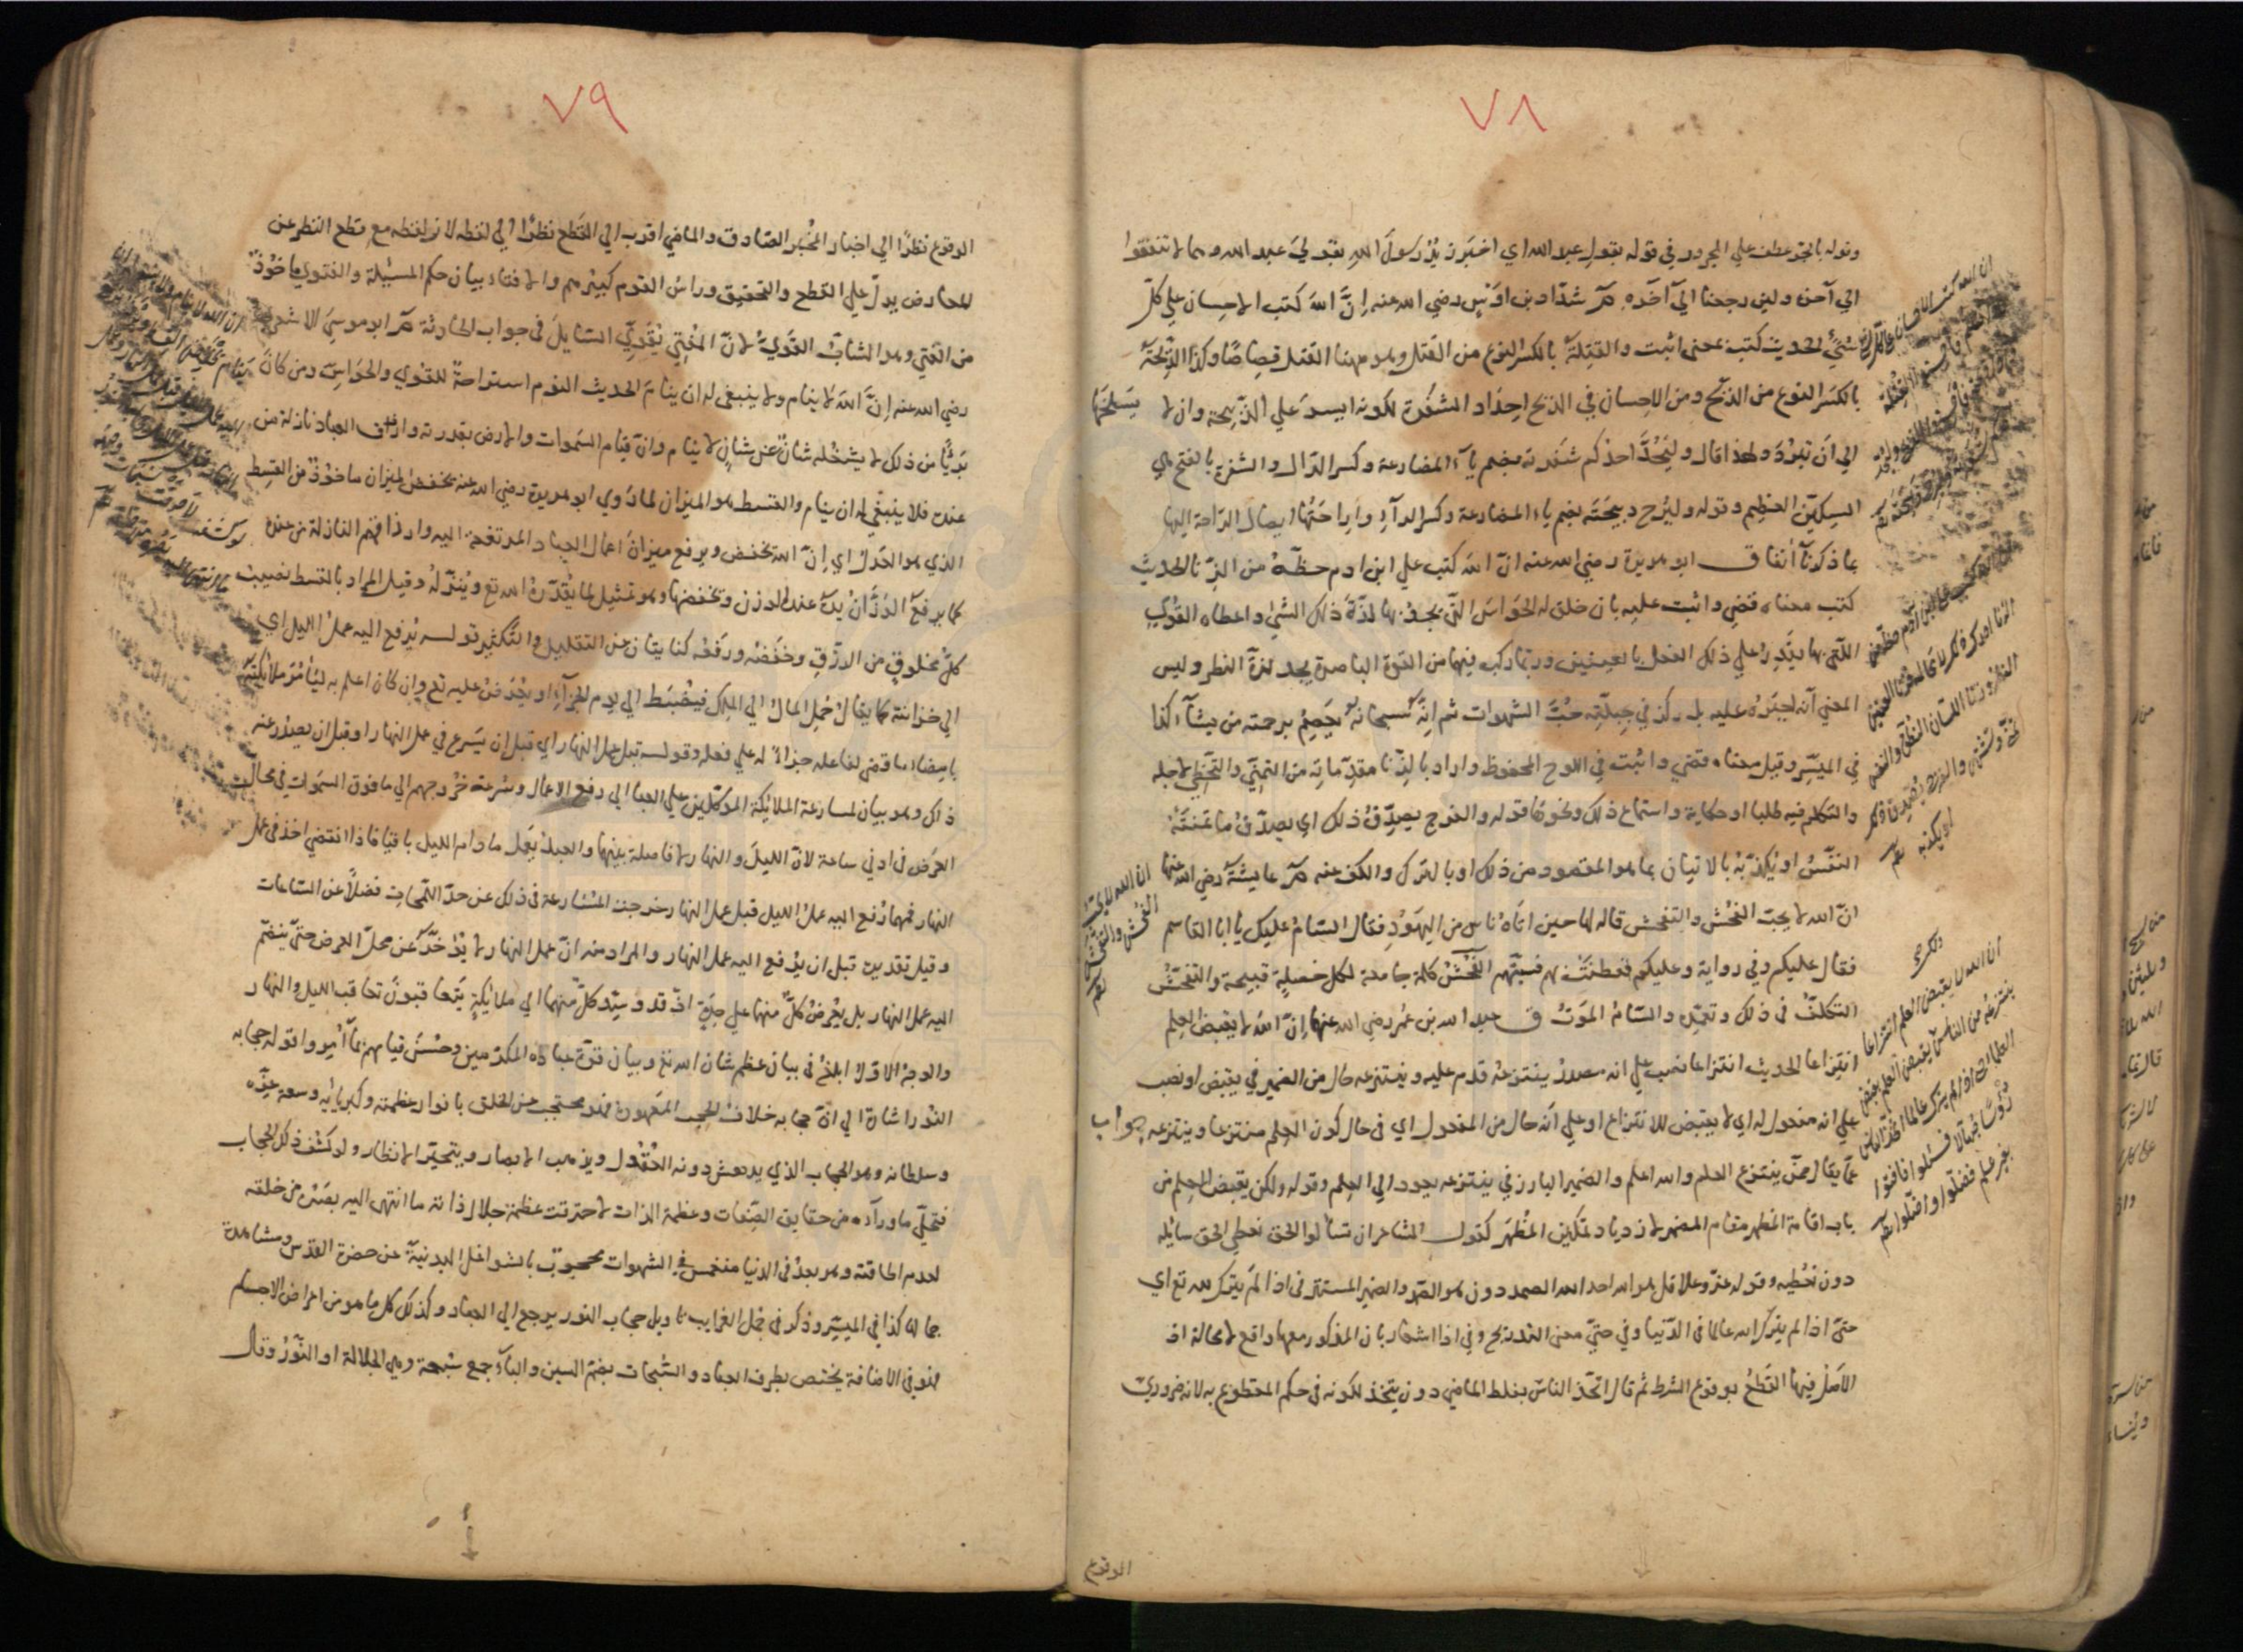 ٧٨
وقوله بالجر عطف علي المجرور في قوله بقول عبد الله اي اخبرن يُرَ رسولَ الله بقولي عبد الله وهما لا تنفقوا
الي آخره ولئن رجعنا اليّ آخره م شدّاد بن اوَسٍ رضي الله عنه إنَّ اللهَ كتب الاحسان علي كلّ
شئٍ الحديث كتب بمعني اثبت والقِتلة بالكسر النوع من القتل وهو ههنا القتل قصاصًا وكذا الذِّبحة
بالكسر النوع من الذبح ومن الاحسان في الذبح احِدَاد الشفرة لكونه ايسرَ علي الذَّبيحة وان لا يسلخها
الي أن تبرُدَ ولهذا قال وليُحِدَّ احدكم شفرته بضم ياء المضارعة وكسر الدال والشفرة بالفتح هي
السكين العظيم وقوله وليُرِح ذبيحَتَه بضم ياء المضارعة وكسر الراء واراحَتُها ايصال الرّاحة اليها
بما ذكرنا آنفا ق ابو هريرة رضي الله عنه انّ اللهَ كتب علي ابن ادم حظّهُ من الزنا الحديث
كتب معناه قضي واثبت عليه بان خلق له الحواسَ التي يجدُ بها لذّةَ ذلك الشئِ واعطاه القوي
اللّتي بها يقدِرُ علي ذلك الفعل بالعينين وربّما ركب فيهما من القوّة الباصرة يجد لذّةَ النظر وليس
المعني أنّه يجبرُه عليه بل ركز في جبلّته حُبَّ الشهوات ثم انّه سبحانه يَعصِمُ برحمته من يشآء كذا
في الميسّر وقيل معناه قضي واثبت في اللوح المحفوظ واراد بالزنا مقدّماته من التمنّي والتخطّي لاجله
والتكلم فيه طلبا او حكاية واستماع ذلك ونحوها قوله والفرج يصدّقُ ذلك اي يصدّقُ ما تمنّتهُ
النفسُ او يُكذّبُه بالاتيان بما هو المقصود من ذلك او بالترك والكف عنه م عايشة رضي الله عنها
انّ الله لا يحبّ الفُحْش والتفحش قاله لها حين اتاهُ ناس من اليهُودِ فقال السّامُ عليك يا ابا القاسم
فقال عليكم وفي رواية وعليكم ففطنتْ بهم فسبّتْهم الفُحْشُ كلمة جامعة لكل خصلةٍ قبيحة والتفحّشُ
التكلّفُ في ذلك وتعمّده والسّامُ الموتُ ق عبد الله بن عُمر رضي الله عنهما إنّ اللهَ لا يقبضُ العلم
انتزاعا الحديث انتزاعا نصب علي انه مصدرُ ينتزعُهُ قدم عليه وينتزعه حال من الضمير في يقبض او نصب
علي انه مفعول له اي لا يقبض للانتزاع او علي أنّه حال من المفعول اي في حال كون العلم منتزعا وينتزعه جواب
عمّا يقال ممّن ينتزع العلم والله اعلم والضمير البارز في ينتزعه يعود الي العلم وقوله ولكن يقبض العلم من
باب اقامة المظهر مقام المضمر لازدياد تمكين المُظهَر كقول الشاعر ان تسألوا الحق نعطي الحق سايله
دون نعطيه وقوله عزّ وعلا قل هو الله احد الله الصمد دون هو الصمد والضمير المستتر في اذا لم يترك لله تع اي
حتّي اذا لم يترك الله عالما في الدّنيا وفي حتّي معني التدريج وفي اذا اشعار بان المذكور معها واقع لا محالة اذ
الاصل فيها القطعُ بوقوع الشرط ثم قال اتّخذ الناسُ بلفظ الماضي دون يتّخذ لكونه في حكم المقطوع به لانه ضروري
الوقوع
ان الله لا يحب
الفُحش والتفحش
انّ الله لا يقبض العلم انتزاعا
ينتزعُه من الناس ولكن يقبض العلم بقبض
العلماء حتى اذا لم يترك عالما اتخذ الناس
رؤسًا جُهّالا فسُئلوا فافتوا
بغير علم فضلّوا واضلّوا
٧٩
الوقوع نظرًا الي اخبار المخُبر الصّادق والماضي اقرب الي القطع نظرًا الي لفظه لان لفظه مع قطع النظر عن
المعارض يدلّ علي القطع والتحقيق وراسُ القوم كبيْرهم والافتاء بيان حكم المسئيلة والفتوي ماخوُذٌ
من الفتي وهو الشابُّ القَويُّ لانّ المفتي يُقوّي السّايلَ في جواب الحادثة م ابو موسَي الاشعري
رضي الله عنه إنَّ اللهَ لا ينام ولا ينبغي له ان ينامَ الحديث النوم استراحةٌ للقوي والحواسّ ومن كانَ
بَريًّا من ذلك لا يشغلُه شأنٌ عن شانٍ لا ينام وانّ قيام السّموات والارض بقدرته وارزاق العباد نازلة من
عنده فلا ينبغي له ان ينام والقسط هو الميزان لما رَوي ابو هريرة رضي الله عنه يخفضُ الميزان ماخوُذٌ من القِسط
الذي هو العَدل اي إنّ الله يخفض ويرفع ميزانَ اعمال العباد المرتفعة اليه وارزاقهم النازلة من عنده
كما يرفعُ الوَزّانُ يدَهُ عند الوزن ويخفضها وهو تمثيل لما يُقدّرُهُ الله تع ويُنزّلُه وقيل المراد بالقسط نصيبُ
كلّ مخلوقٍ من الرزقِ وخفضُه ورفعُه كنايتان عن التقليل والتكثير قوله يُرفع اليه عملُ الليل اي
الي خزانته كما يقالُ حُمِل المالُ الي الملِكِ فيُضْبَط الي يوم الجزآءِ او يُعْرَضُ عليه تع وان كان اعلم به ليَأمُرَ ملائكتَه
بامضاء ما قضي لفاعله جزاءً له علي فعله وقوله قبل عمل النهار اي قبل ان يَشرع في عمل النهار او قبل ان يصدر عنه
ذاك وهو بيان لمسارعة الملائكة الموكّلين علي العباد الي رفع الاعمال وسُرعة خرُوجهم الي ما فوق السموات في محالّ
العرض في ادني ساعة لانّ الليلَ والنهار لا فاصلة بينها والعبدُ يعمَل ما دام الليل باقيا فاذا انقضي اخذ في عمل
النهار فمهما رُفع اليه عملُ الليل قبل عمل النهار خرجت المُسَارعة في ذلك عن حدّ اللمحاتِ فضلًا عن السّاعات
وقيل تقديره قبل ان يُرفع اليه عمل النهار والمراد منه انّ عمل النهار لا يُؤخّرُ عن محلّ العرض حتّي ينضمّ
اليه عمل النهار بل يُعْرضُ كلٌّ منهما علي حِدةٍ اذ قد وكّل كلٌّ منهما الي ملائكةٍ يتعاقبون تعاقب الليل والنهار
والوجهُ الاوّل ابلغُ في بيان عظم شان الله تع وبيان قوّة عباده المكرّمين وحُسْنِ قيامهم بمآ أمُروا قوله حجابه
النّور اشارة الي انّ حجابه خلافُ الحجب المعهودة فهو محتجب عن الخلق بانوار عظمته وكبريائه وسعة عزّه
وسلطانه وهو الحجاب الذي يدهش دونه العُقُول ويذهب الابصار ويتحيّر الانظار ولو كشف ذلك الحجاب
فتجلّي ماورآءه من حقايق الصّفات وعظمة الذات لاحترقت عظمة جلال ذاته ما انتهي اليه بصرُه من خلقه
لعدم اطاقته وهو بعدُ في الدنيا منغمس في الشهوات محجوبٌ بالشواغل البدنيّة عن حضرة القدُس ومشاهدة
جماله كذا في الميسّر وذكر في جُمل الغرايب تاويل حجاب النور يرجع الي العباد وكذلك كل ما هو من اعراض الاجسام
فهو في الاضافة يختص بطرف العباد والسُّبُحات بضمّ السين والباء جمع سُبحة وهي الجلالة او النّورُ وقال